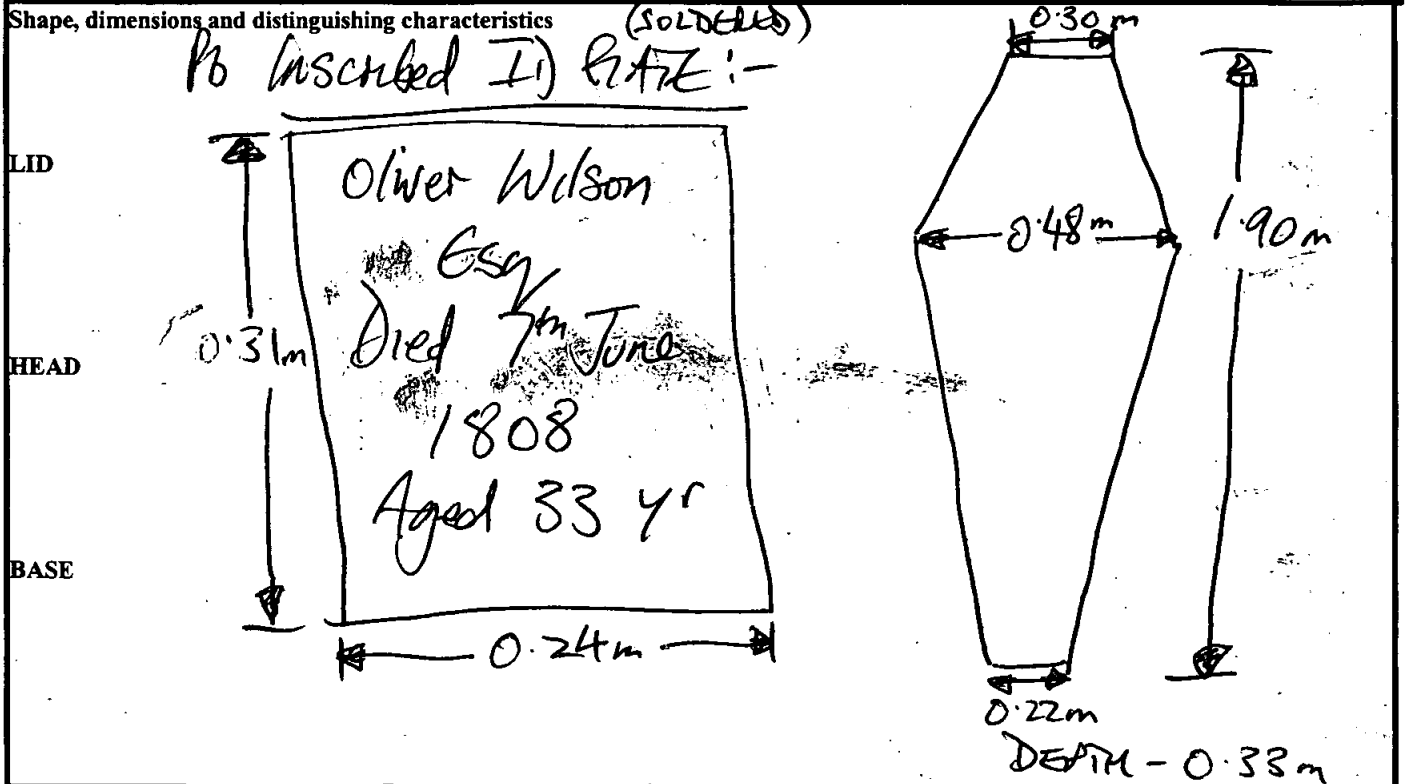 Shape, dimensions and distinguishing characteristics (SOLDERED)
Pb Inscribed ID PLATE :-
LID
HEAD
BASE
Oliver Wilson
Esq
Died 7th June
1808
Aged 33 yr
0.31m
0.24m
0.30m
0.48m
1.90m
0.22m
DEPTH - 0.33m